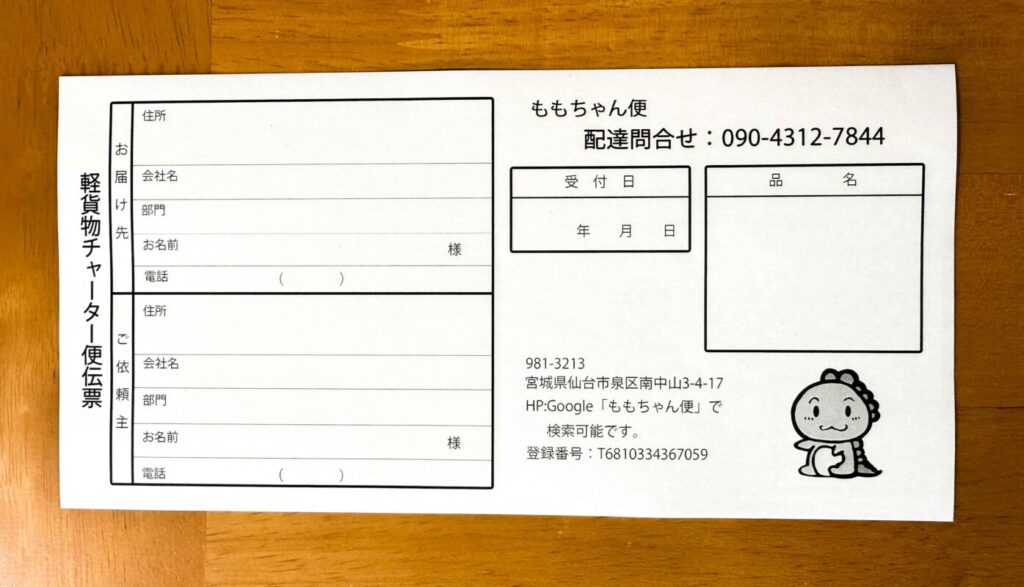 軽貨物チャーター便伝票
お届け先
住所
会社名
部門
お名前 様
電話 ( )
ご依頼主
住所
会社名
部門
お名前 様
電話 ( )
ももちゃん便
配達問合せ：090-4312-7844
受 付 日
年 月 日
品 名
981-3213
宮城県仙台市泉区南中山3-4-17
HP:Google「ももちゃん便」で
検索可能です。
登録番号：T6810334367059